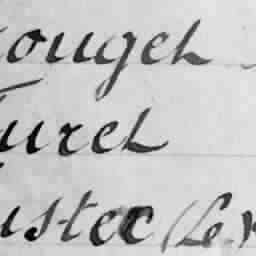 ouget
uret
ustec (Le